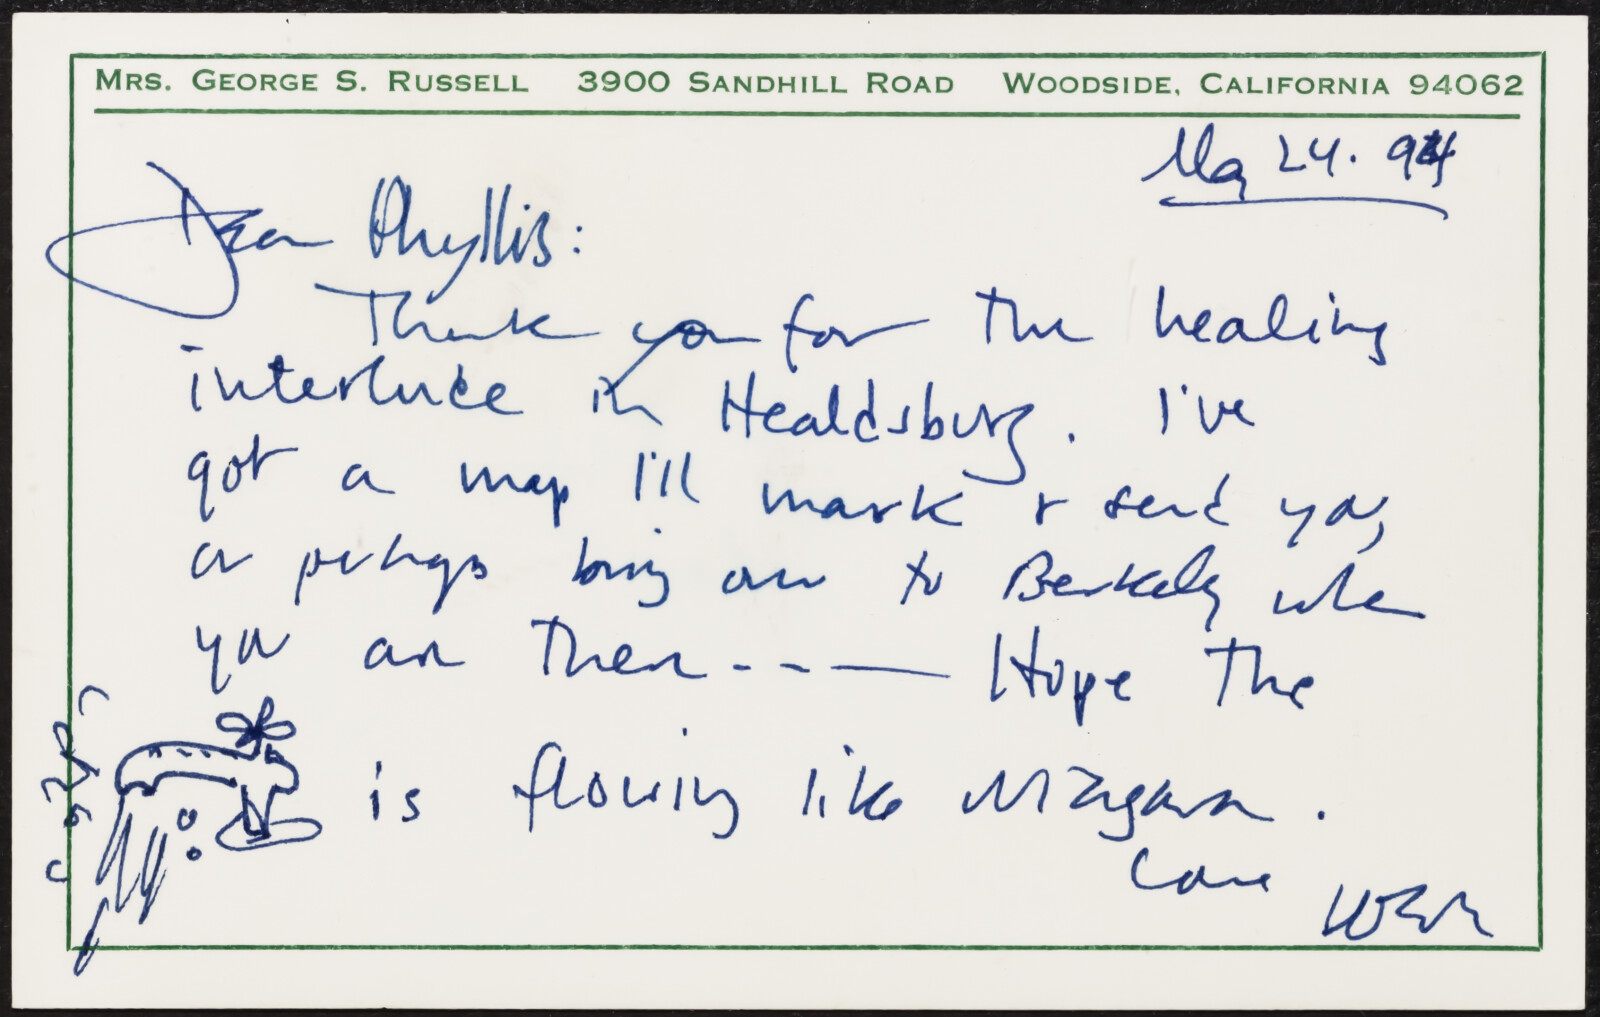 MRS. GEORGE S. RUSSELL 3900 SANDHILL ROAD WOODSIDE, CALIFORNIA 94062
May 24. 94
Dear Phyllis:
Thank you for the healing
interlude in Healdsburg. I've
got a map I'll mark & send you,
or perhaps bring over to Berkeley when
you are there - - — Hope the
is flowing like Niagara.
Love